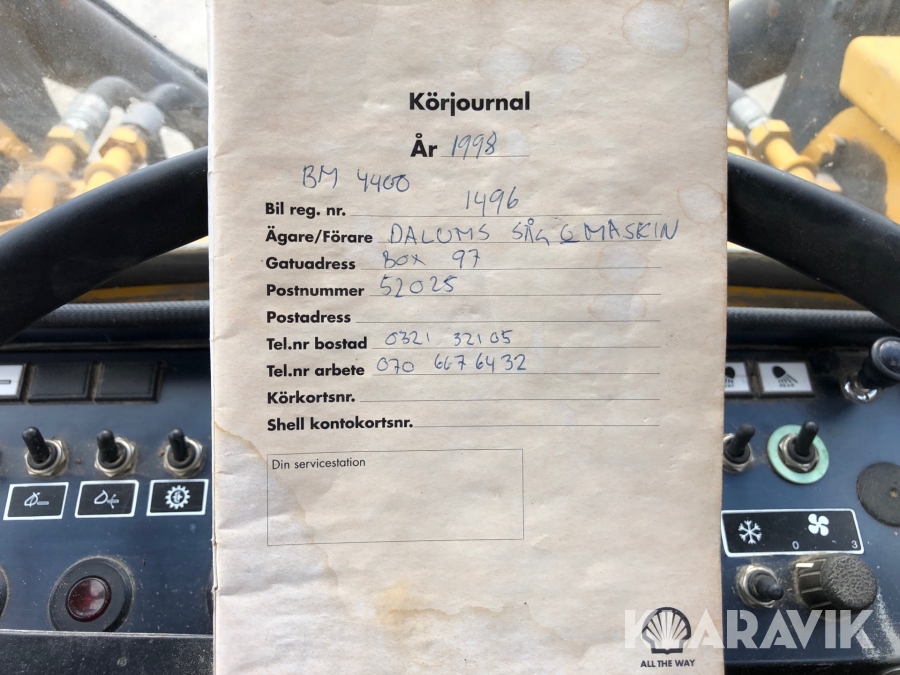 Körjournal
År 1998
BM 4400
Bil reg. nr. 1496
Ägare/Förare DALUMS SÅG & MASKIN
Gatuadress BOX 97
Postnummer 52025
Postadress
Tel.nr bostad 0321 32105
Tel.nr arbete 070 667 6432
Körkortsnr.
Shell kontokortsnr.
Din servicestation
0 3
ALL THE WAY
KLARAVIK